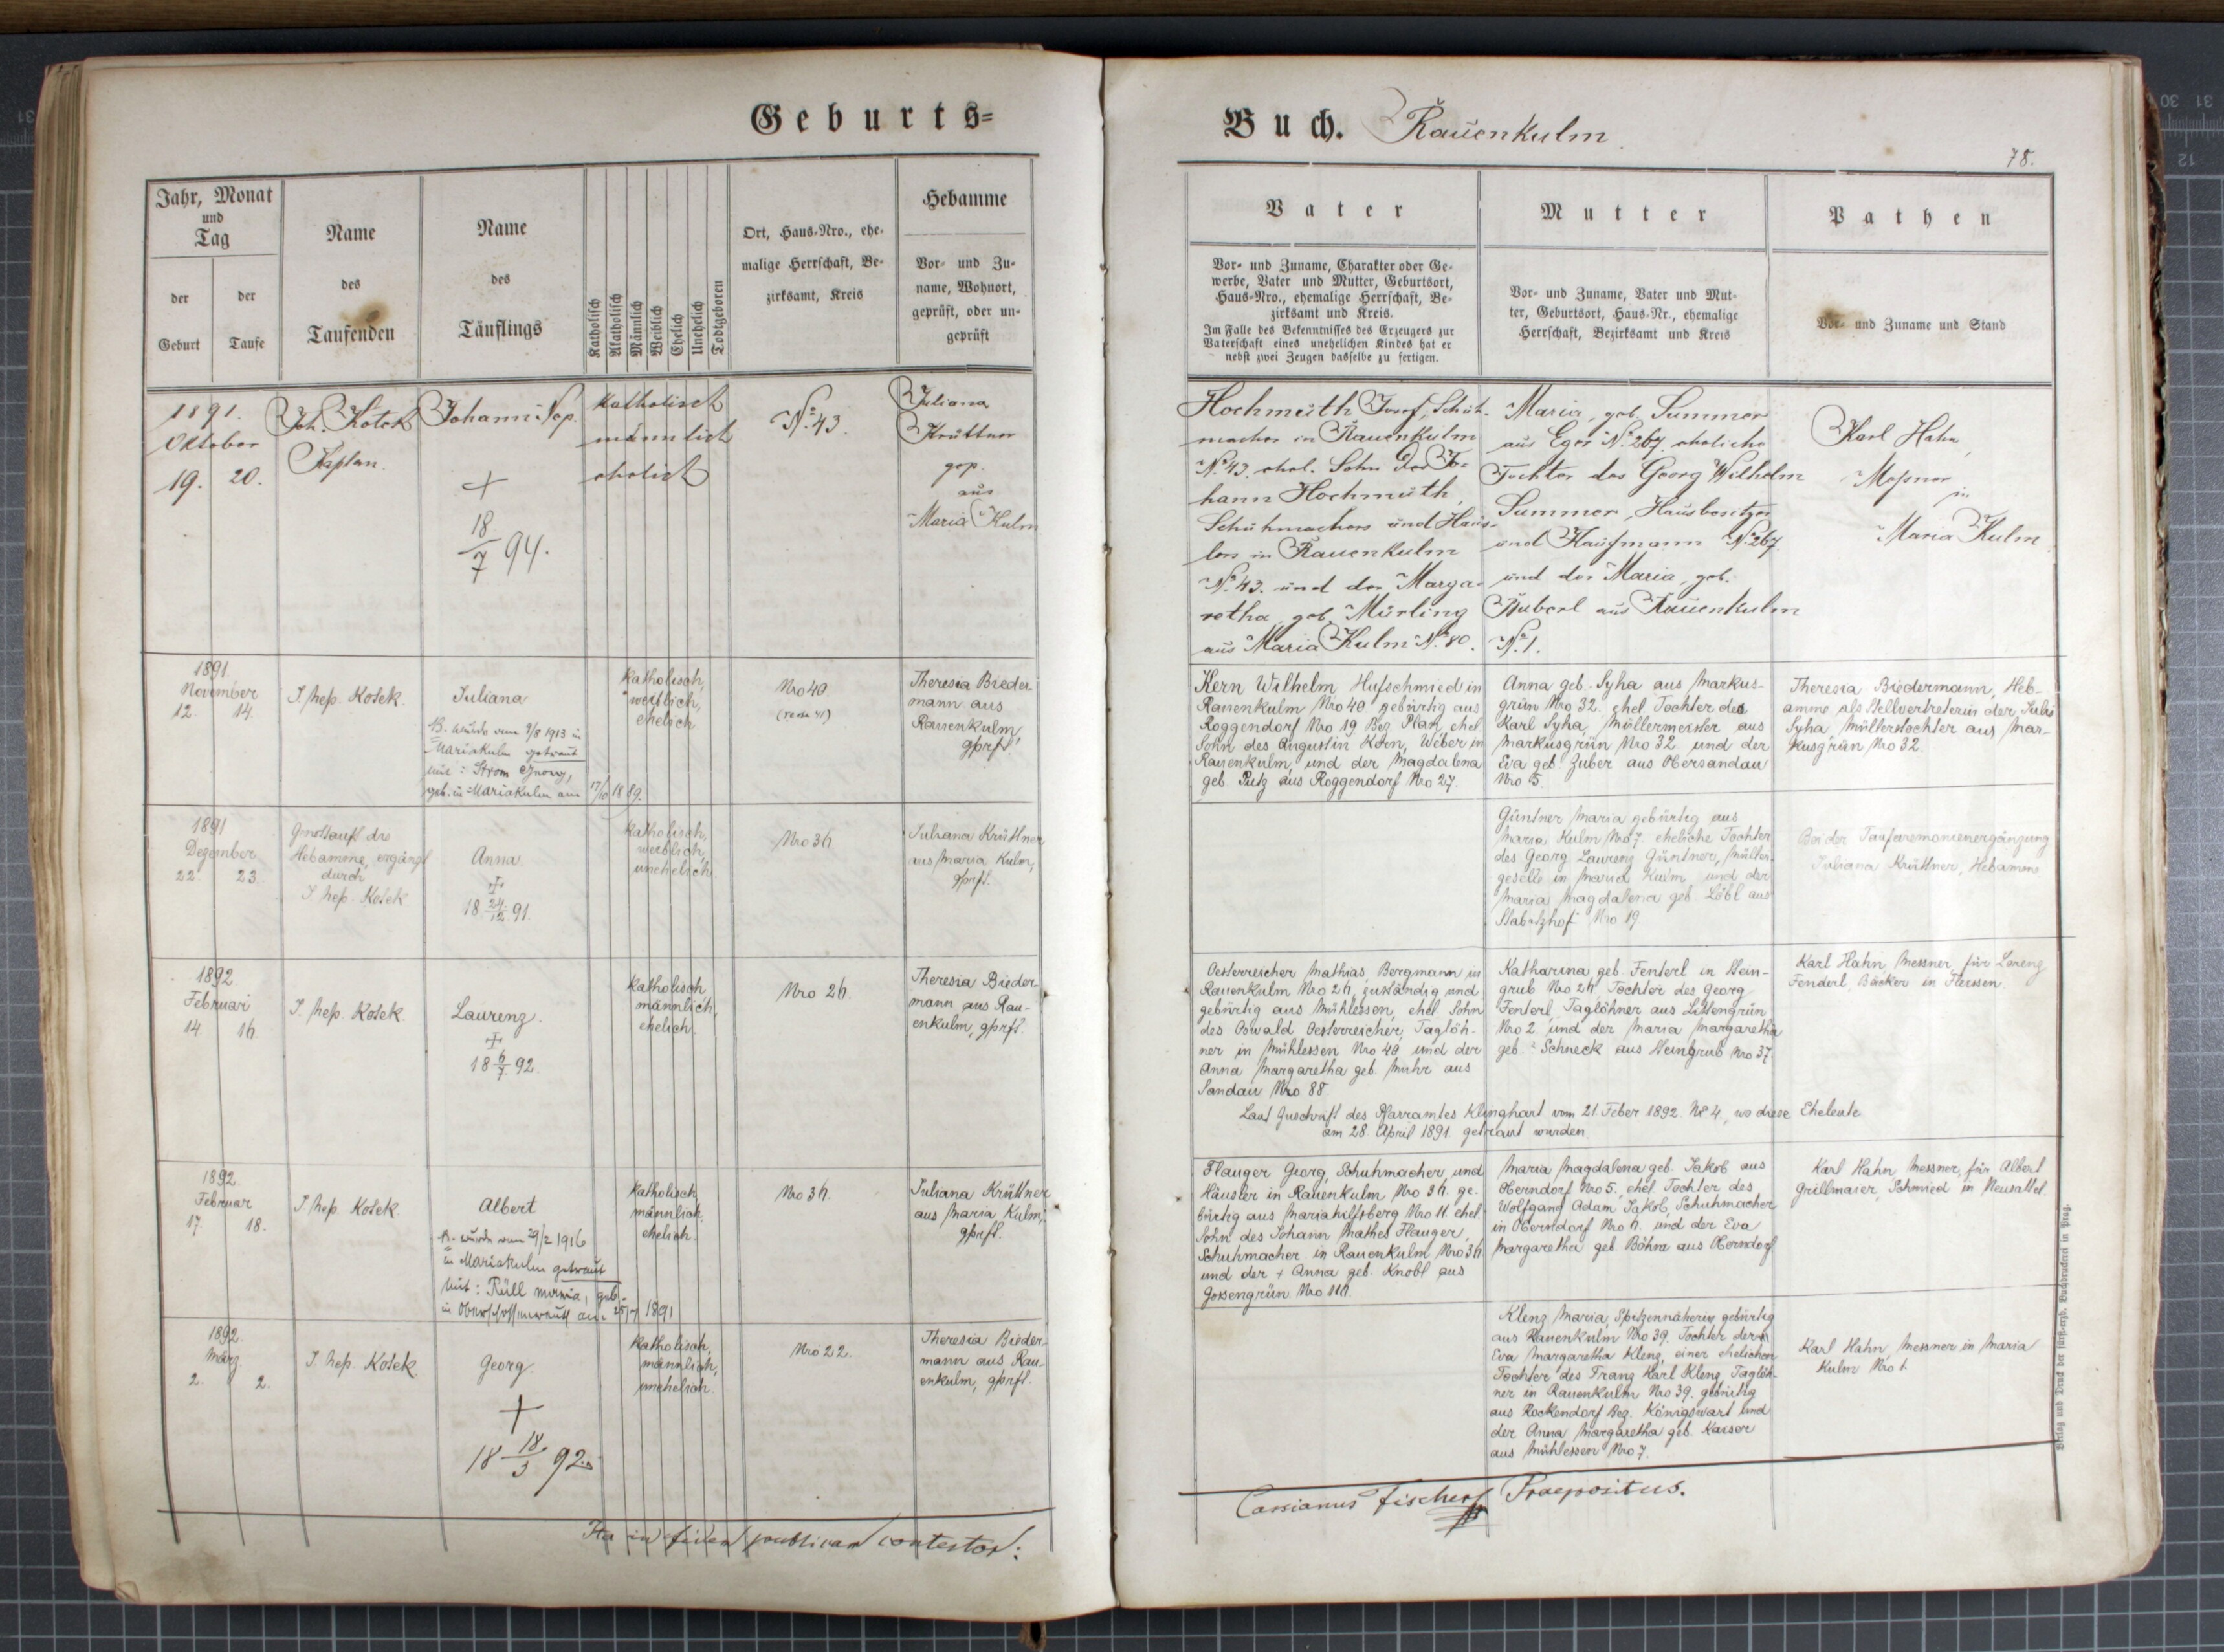 Geburts=
Jahr, Monat
und
Tag
der
Geburt
der
Taufe
Name
des
Taufenden
Name
des
Täuflings
Katholisch
Akatholisch
Männlich
Weiblich
Ehelich
Unehelich
Todtgeboren
Ort, Haus-Nro., ehe-
malige Herrschaft, Be-
zirksamt, Kreis
Hebamme
Vor- und Zu-
name, Wohnort,
geprüft, oder un-
geprüft
1891.
Oktober
19. 20.
Joh. Kotek
Kaplan.
Johann Nep.
+
18/7 94.
katholisch
männlich
ehelich
No. 43.
Juliana
Krüttner
gep.
aus
Maria Kulm
1891.
November
12. 14.
J. Nep. Kosek.
Juliana
B. wurde am 9/8 1913 in
Mariakulm getraut
mit: Strom Georg,
geb. in Mariakulm am 17/10 1889.
katholisch,
weiblich,
ehelich
Nro 40.
(recte 41)
Theresia Bieder
mann aus
Rauenkulm,
gprft.
1891
Dezember
22. 23.
Gnottauft die
Hebamme, ergänzt
durch
J. Nep. Kosek
Anna
+
18 24/12 91.
katholisch,
weiblich,
unehelich.
Nro 36
Juliana Krüttner
aus Maria Kulm,
gprft.
1892
Februari
14. 16.
J. Nep. Kosek.
Laurenz.
+
18 6/7 92.
katholisch
männlich,
ehelich.
Nro 26.
Theresia Bieder-
mann aus Rau-
enkulm, gprft.
1892.
Februar
17. 18.
J. Nep. Kosek.
Albert
B. wurde am 29/2 1916
in Mariakulm getraut
mit: Rüll Maria, geb.
in
am
1891
katholisch,
männlich,
ehelich.
Nro 36.
Juliana Krüttner
aus Maria Kulm,
gprft.
1892.
März
2. 2.
J. Nep. Kosek
Georg.
+
18 18/3 92.
katholisch,
männlich,
unehelich.
Nro 22.
Theresia Bieder-
mann aus Rau
enkulm, gprft.
Ita in fidem publicam contestor:
Buch. Rauenkulm.
78.
Vater
Vor- und Zuname, Charakter oder Ge-
werbe, Vater und Mutter, Geburtsort,
Haus-Nro., ehemalige Herrschaft, Be-
zirksamt und Kreis.
Im Falle des Bekenntnisses des Erzeugers zur
Vaterschaft eines unehelichen Kindes hat er
nebst zwei Zeugen dasselbe zu fertigen.
Mutter
Vor- und Zuname, Vater und Mut-
ter, Geburtsort, Haus-Nr., ehemalige
Herrschaft, Bezirksamt und Kreis
Pathen
Vor- und Zuname und Stand
Hochmuth Josef, Schuh-
macher in Rauenkulm
No. 43, ehel. Sohn des Jo-
hann Hochmuth,
Schuhmachers und Häus-
lers in Rauenkulm
No. 43. und der Marga-
retha, geb. Mürling
aus Maria Kulm No. 80.
Maria, geb. Summer
aus Eger No. 267, eheliche
Tochter des Georg Wilhelm
Summer, Hausbesitzer
und Kaufmann No. 267
und der Maria, geb.
Zuberl aus Rauenkulm
No. 1.
Karl Hahn,
Meßner
in
Maria Kulm.
Kern Wilhelm, Hufschmied in
Rauenkulm Nro 40 gebürtig aus
Roggendorf Nro 19 Bez. Plan, ehel
Sohn des Augustin Kern, Weber in
Rauenkulm, und der Magdalena
geb. Putz aus Roggendorf Nro 27.
Anna geb. Syha aus Markus-
grün Nro 32. ehel. Tochter des
Karl Syha, Müllermeister aus
Markusgrün Nro 32 und der
Eva geb Zuber aus Obersandau
Nro 5.
Theresia Biedermann, Heb-
amme als Stellvertreterin der Julie
Syha, Müllerstochter aus Mar-
kusgrün Nro 32.
Güntner Maria gebürtig aus
Maria Kulm Nro 7. eheliche Tochter
des Georg Laurenz Güntner, Müller-
geselle in Maria Kulm, und der
Maria Magdalena geb. Löbl aus
Stabitzhof Nro 19
Bei der Taufzeremonienergänzung
Juliana Krüttner, Hebamme
Oesterreicher Mathias, Bergmann in
Rauenkulm Nro 26, zuständig und
gebürtig aus Mühlessen, ehel. Sohn
des Oswald Oesterreicher, Taglöh-
ner in Mühlessen Nro 40 und der
Anna Margaretha geb. Muhr aus
Sandau Nro 88.
Katharina geb. Fenderl in Stein-
grub Nro 26 Tochter des Georg
Fenderl, Taglöhner aus Littengrün
Nro 2 und der Maria Margaretha
geb. Schneck aus Steingrub Nro 37.
Karl Hahn, Messner, für Lorenz
Fenderl, Bäcker in Fleissen.
Laut Zuschrift des Pfarramtes Klinghart vom 21. Feber 1892. No 4, wo diese Eheleute
am 28. April 1891 getraut wurden.
Flauger Georg, Schuhmacher und
Häusler in Rauenkulm Nro 36. ge-
bürtig aus Mariahilfsberg Nro 11. ehel.
Sohn des Johann Mathes Flauger,
Schuhmacher in Rauenkulm Nro 36
und der + Anna geb. Knobl aus
Gossengrün Nro 116.
Maria Magdalena geb. Jakob aus
Oberndorf Nro 5. ehel. Tochter des
Wolfgang Adam Jakob, Schuhmacher
in Oberndorf Nro 6. und der Eva
Margaretha geb. Böhm aus Oberndorf
Karl Hahn, Messner, für Albert
Grillmaier, Schmied in Neusattel.
Klenz Maria, Spitzennäherin gebürtig
aus Rauenkulm Nro 39. Tochter der
Eva Margaretha Klenz, einer ehelichen
Tochter des Franz Karl Klenz, Taglöh-
ner in Rauenkulm Nro 39. gebürtig
aus Rockendorf Bez. Königswart und
der Anna Margaretha geb. Kaiser
aus Mühlessen Nro 7.
Karl Hahn, Messner in Maria
Kulm Nro 1.
Cassianus Fischer Praepositus.
Verlag und Druck der fürst-erzb. Buchdruckerei in Prag.